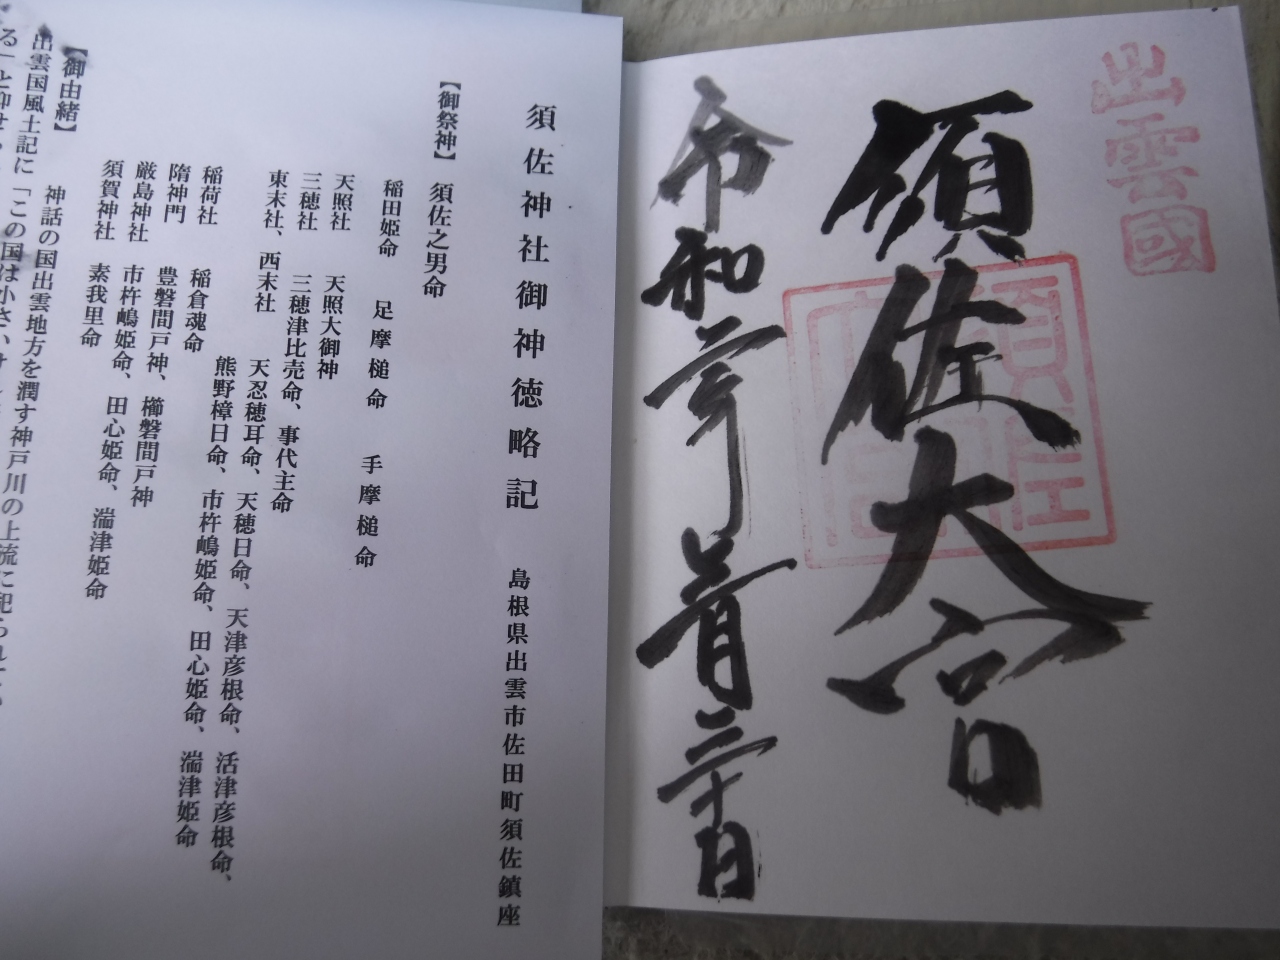 出雲國
須佐大宮
須佐大宮
令和元年十一月三十日
須佐神社御神徳略記 島根県出雲市佐田町須佐鎮座
【御祭神】 須佐之男命
稲田姫命 足摩槌命 手摩槌命
天照社 天照大御神
三穂社 三穂津比売命、事代主命
東末社、西末社 天忍穂耳命、天穂日命、天津彦根命、活津彦根命、
熊野樟日命、市杵嶋姫命、田心姫命、湍津姫命
稲荷社 稲倉魂命
隋神門 豊磐間戸神、櫛磐間戸神
厳島神社 市杵嶋姫命、田心姫命、湍津姫命
須賀神社 素我里命
【御由緒】 神話の国出雲地方を潤す神戸川の上流に祀られて
出雲国風土記に「この国は小さい
る」と仰せ